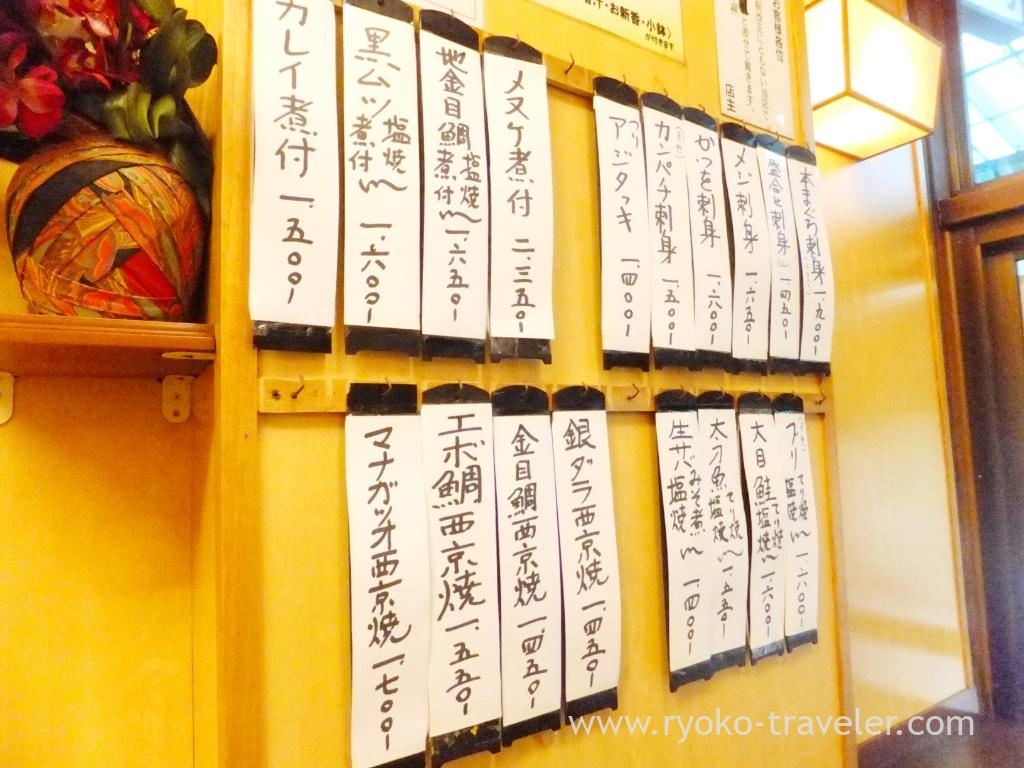 ・お新香・小鉢〉
が付きます
お客様各位
店主
本まぐろ刺身 一、九〇〇-
盛合せ刺身 一、四五〇-
メジ刺身 一、六五〇-
かつを刺身
カンパチ刺身 一、五〇〇-
アジタタキ 一、四〇〇-
メヌケ煮付 二、三五〇-
地金目鯛 塩焼 煮付 〜 一、六五〇-
黒ムツ 塩焼 煮付 〜 一、六〇〇-
カレイ煮付 一、五〇〇-
ブリ てり焼 塩焼 〜
大目鮭 てり焼 塩焼 〜 一、六〇〇-
太刀魚 てり焼 塩焼 〜 一、五五〇-
生サバ みそ煮 塩焼 〜 一、四〇〇-
銀ダラ西京焼 一、四五〇-
金目鯛西京焼 一、四五〇-
エボ鯛西京焼 一、五五〇-
マナガツオ西京焼 一、七〇〇-
www.ryoko-traveler.com